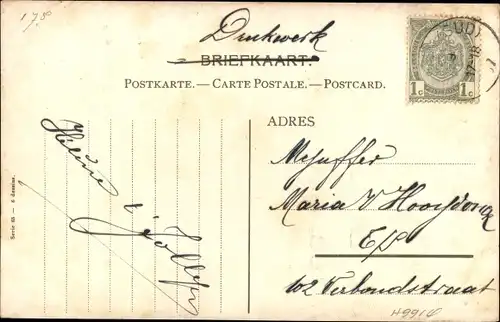 175
Drukwerk
BRIEFKAART.
POSTKARTE.—CARTE POSTALE.—POSTCARD.
1c 1c
ADRES
Mejuffer
Maria V Hooydonck
E/V
102 Verbondstraat
Serie 65 — 6 dessins.
H9910